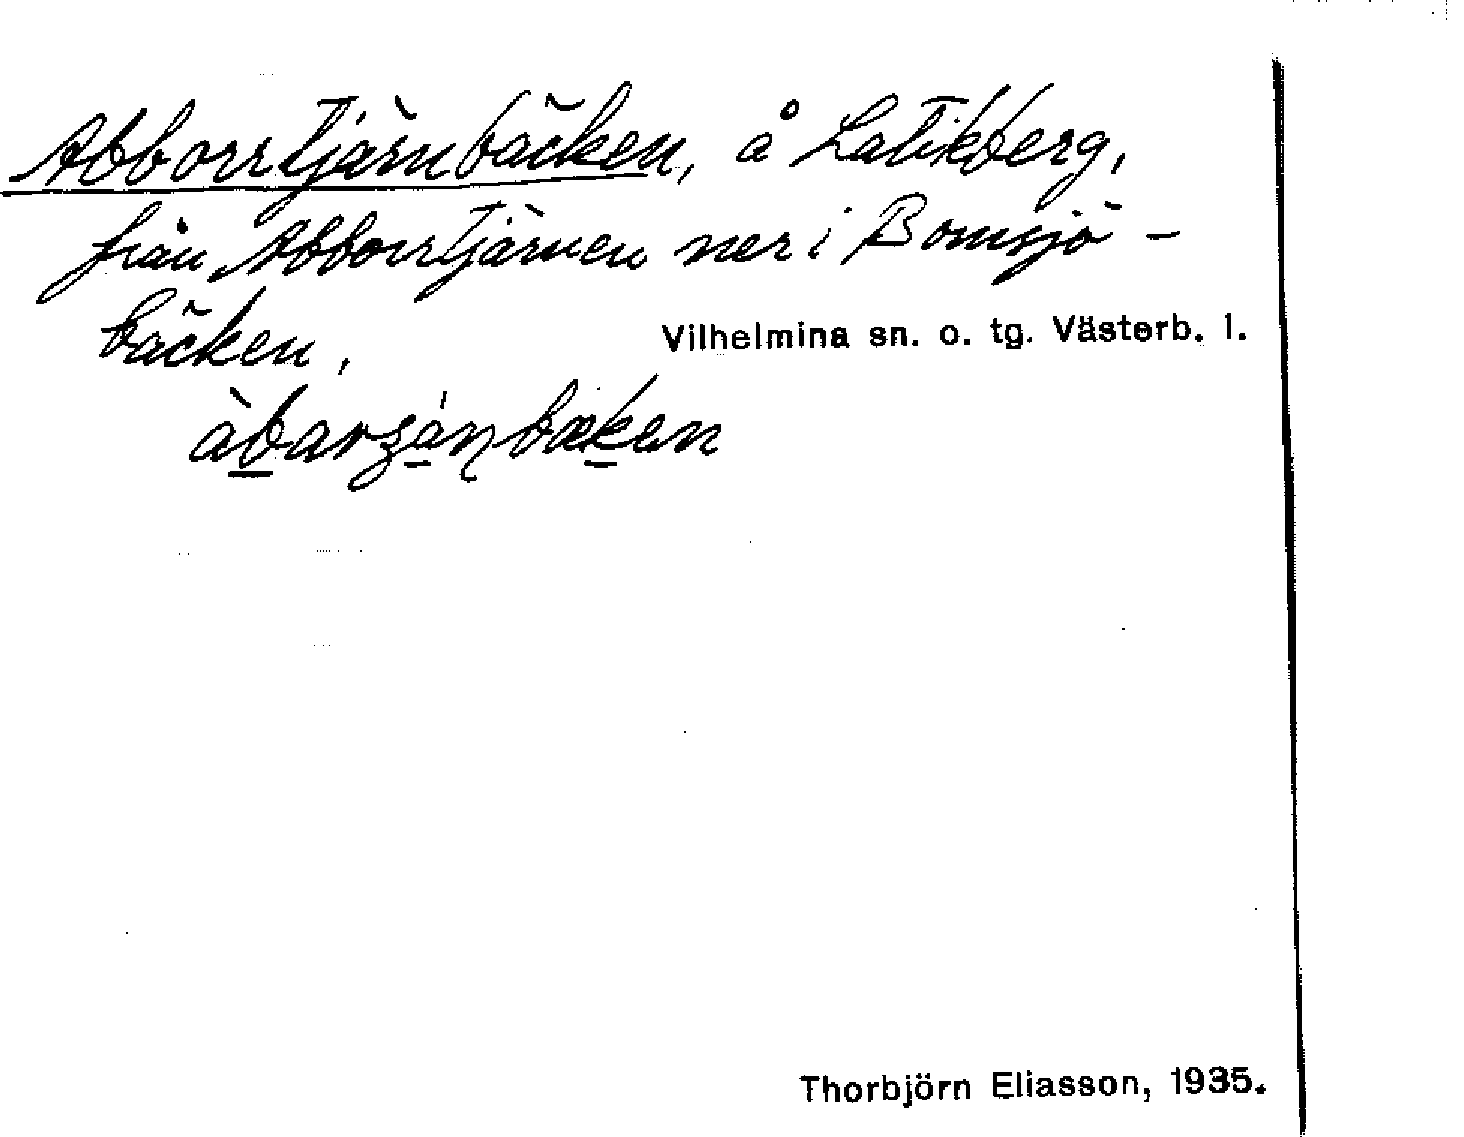 Abborrtjärnbäcken, å Latikberg,
från Abborrtjärnen ner i Bomsjö-
bäcken,
Vilhelmina sn. o. tg. Västerb. l.
àbarʒánbæken
Thorbjörn Eliasson, 1935.